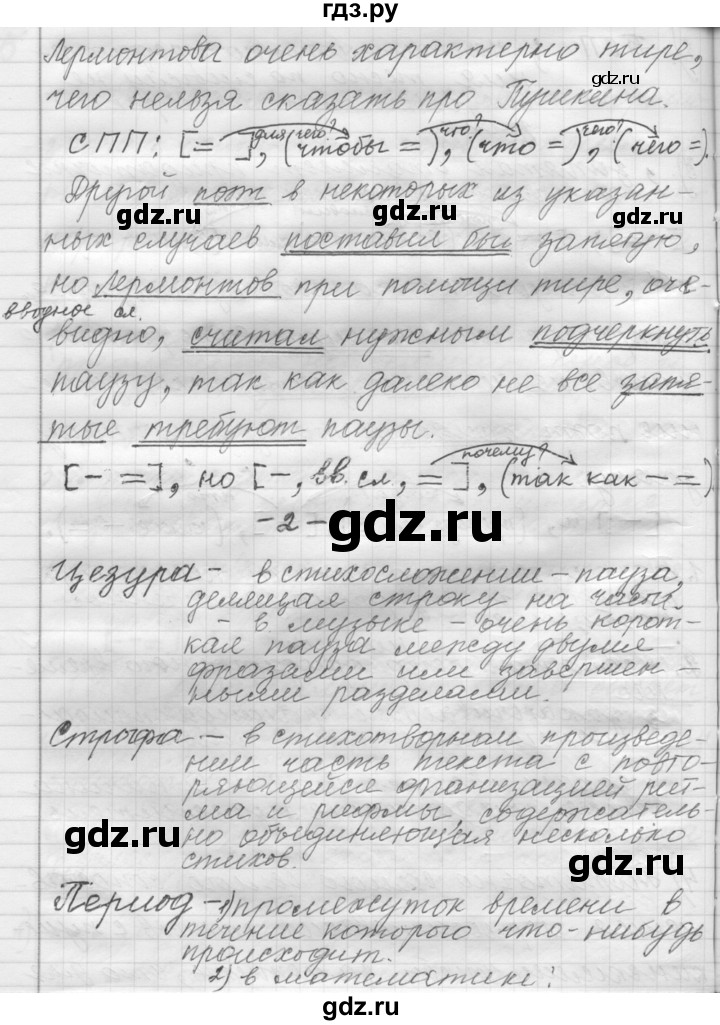 гдз.ру
Лермонтова очень характерно тире,
gdz.ru
чего нельзя сказать про Пушкина.
для чего? что? чего?
СПП: [= ], (чтобы =), (что =), (чего =).
Другой поэт в некоторых из указан-
gdz.ru gdz.ru
ных случаев поставил бы запятую,
но Лермонтов при помощи тире, оче-
вводное сл.
видно, считал нужным подчеркнуть
паузу, так как далеко не все запя-
тые требуют паузы.
почему?
[- =], но [-, вв. сл., = ], (так как - =)
gdz.ru
-2-
Цезура - в стихосложении - пауза,
делящая строку на части.
- в музыке - очень корот-
кая пауза между двумя
фразами или завершен-
ными разделами.
Строфа - в стихотворном произведе-
нии часть текста с повто-
ряющейся организацией рит-
ма и рифмы, содержатель-
gdz.ru
но объединяющая несколько
стихов.
gdz.ru
Период - 1) промежуток времени в
течение которого что-нибудь
происходит.
2) в математике:
gdz.ru